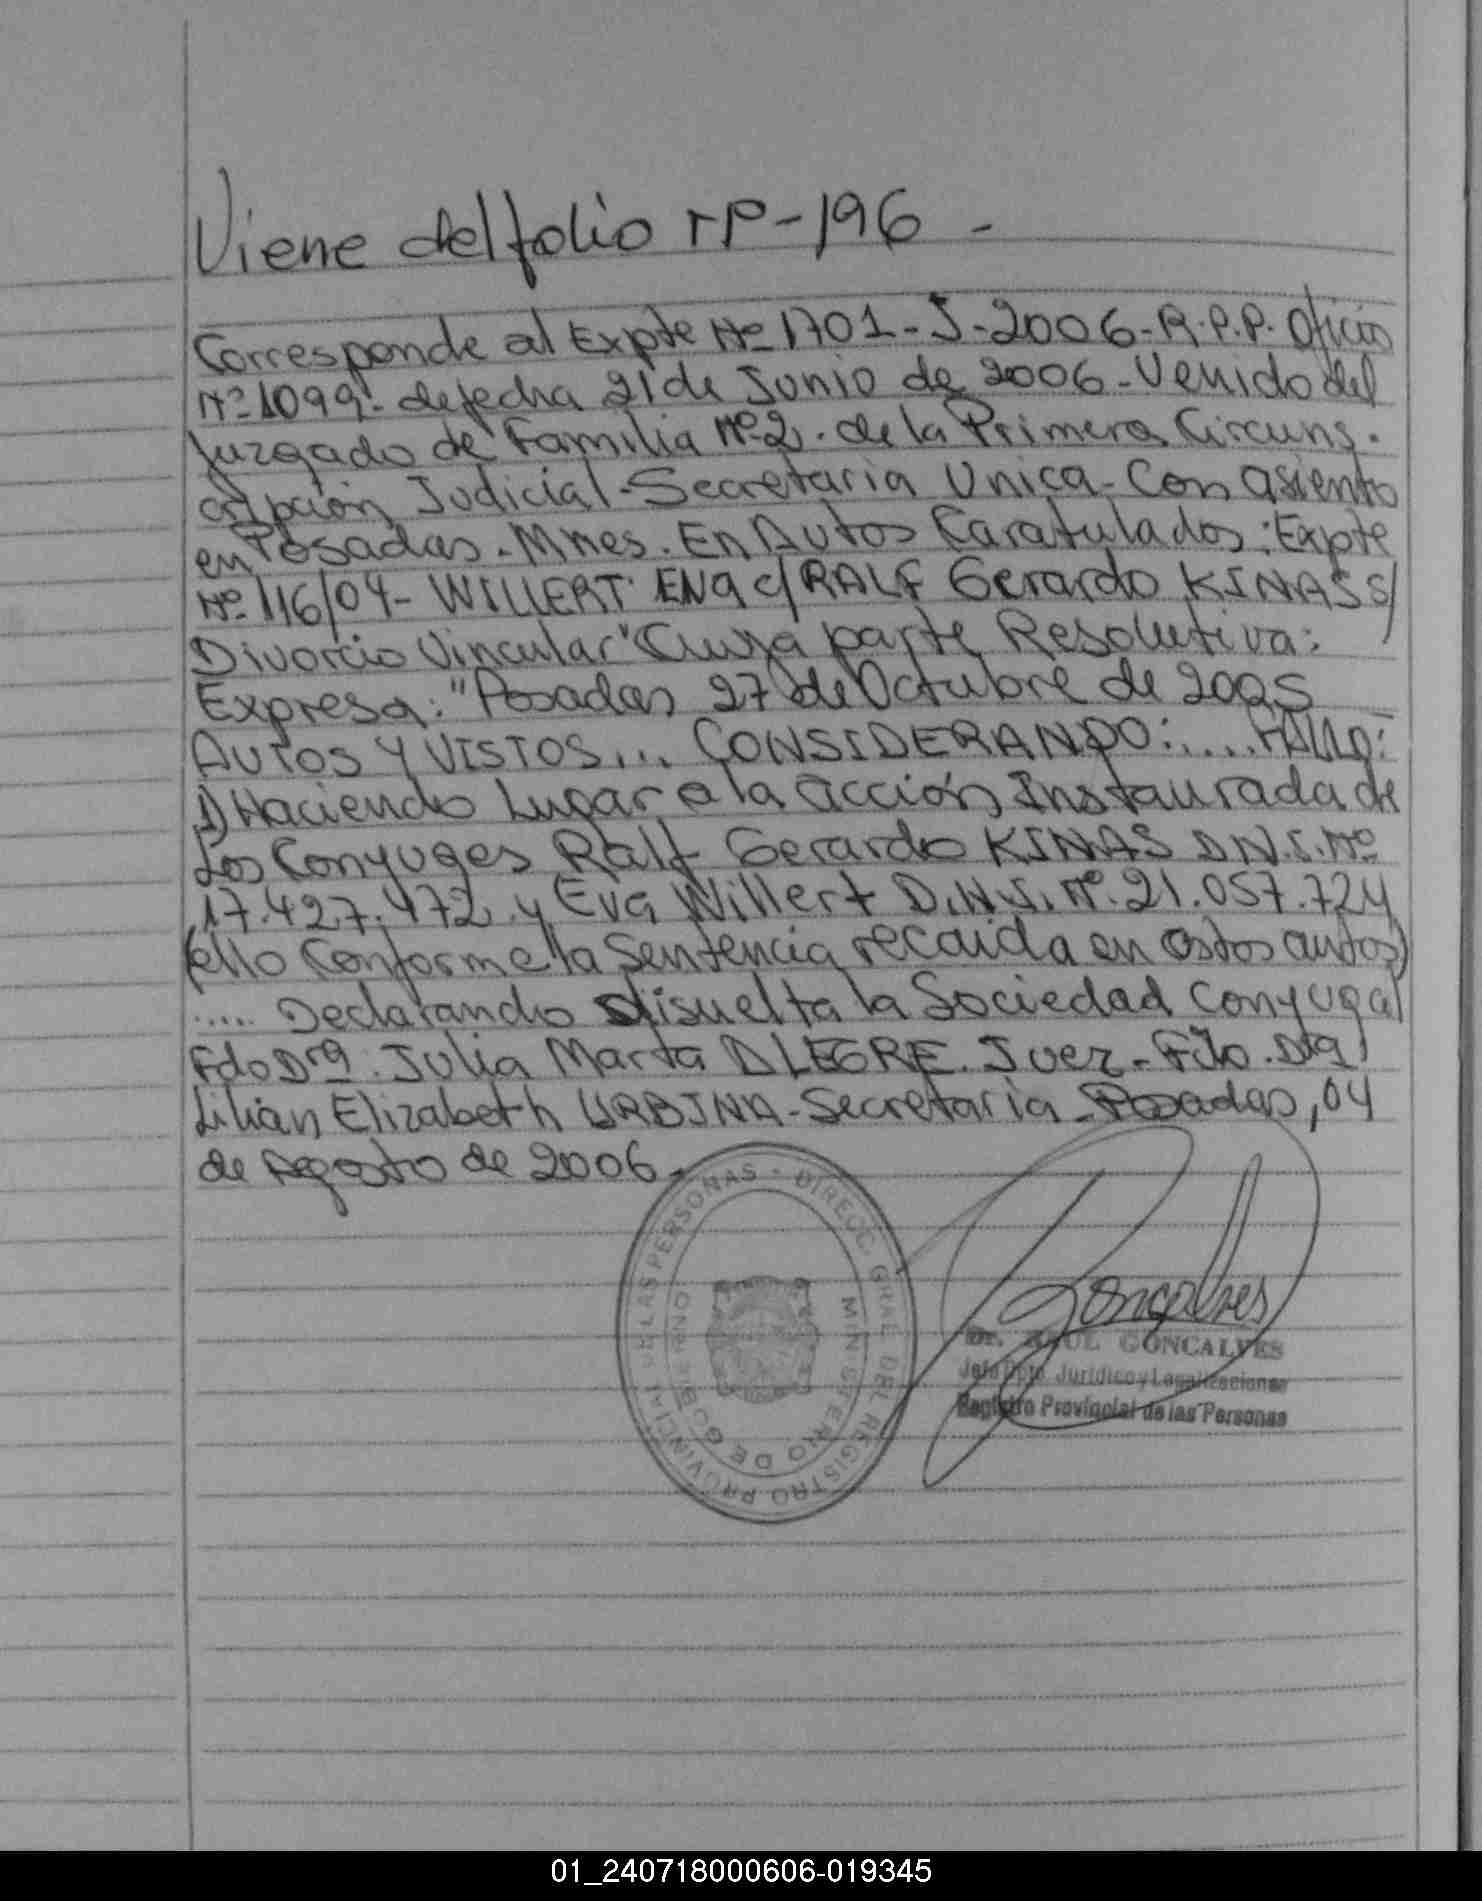 Viene del folio Nº-196 -
Corresponde al Expte Nº 1701-J-2006-R.P.P. Oficio
Nº 1099- de fecha 21 de Junio de 2006- Venido del
Juzgado de Familia Nº 2. de la Primera Circuns.
cripción Judicial-Secretaria Unica-Con asiento
en Posadas. Mnes. En Autos Caratulados: Expte
Nº 116/04- WILLERT EVA c/RALF Gerardo KINAS S/
Divorcio Vincular" Cuya parte Resolutiva:
Expresa: "Posadas 27 de Octubre de 2005
AUTOS Y VISTOS... CONSIDERANDO:.....FALLO:
1) Haciendo Lugar a la acción Instaurada de
Los Conyuges Ralf Gerardo KINAS D.N.I. Nº
17.427.472 y Eva Willert D.N.I. Nº. 21.057.724
(ello Conforme la Sentencia recaida en estos autos)
..... Declarando disuelta la Sociedad Conyugal
Fdo Dra. Julia Marta ALEGRE. Juez- Fdo. Dra
Lilian Elizabeth URBINA-Secretaria-Posadas, 04
de Agosto de 2006-
DIRECC. GRAL DEL REGISTRO PROVINCIAL DE LAS PERSONAS -
MINISTERIO DE GOBIERNO
Gonçalves
Dr. RAUL GONCALVES
Jefe Dpto Jurídico y Legalizaciones
Registro Provincial de las Personas
01_240718000606-019345